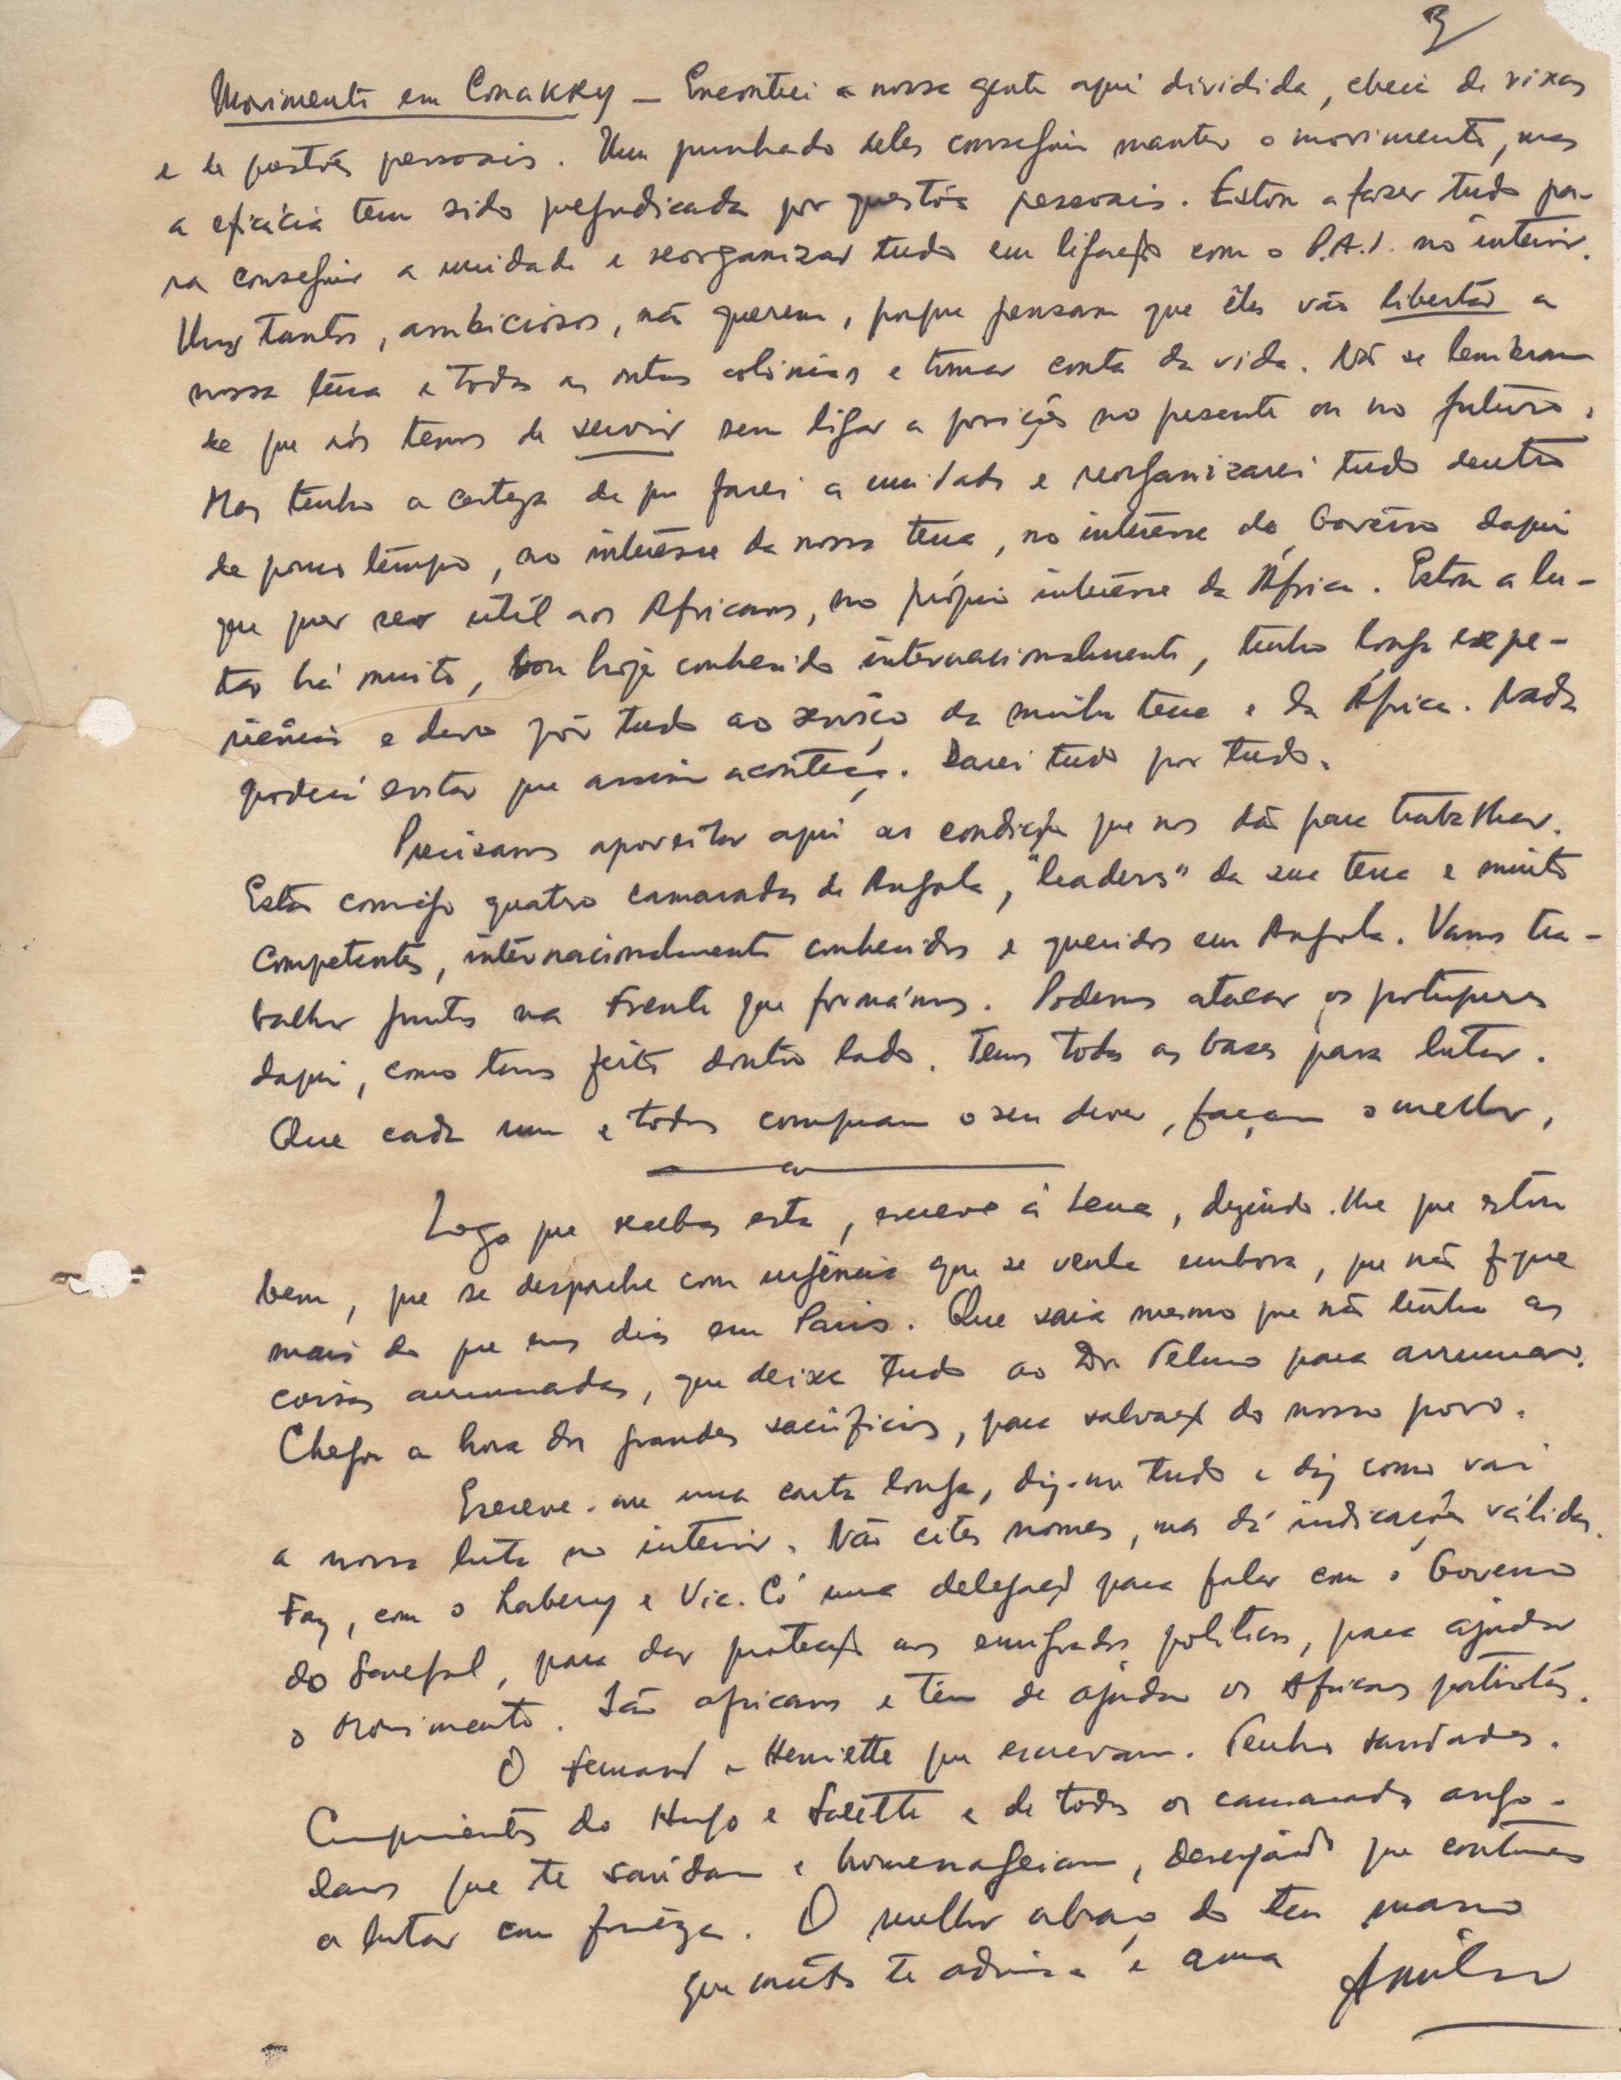 3
Movimento em Conakry — Encontrei a nossa gente aqui dividida, cheia de rixas
e de questões pessoais. Um punhado deles conseguiu manter o movimento, mas
a eficácia tem sido prejudicada por questões pessoais. Estou a fazer tudo pa-
ra conseguir a unidade e reorganizar tudo em ligação com o P.A.I. no interior.
Uns tantos, ambiciosos, não querem, porque pensam que êles vão libertar a
nossa terra e todas as outras colónias e tomar conta da vida. Não se lembram
de que nós temos de servir sem ligar a posições no presente ou no futuro.
Mas tenho a certeza de que farei a unidade e reorganizarei tudo dentro
de pouco tempo, no interêsse da nossa terra, no interêsse do Govêrno daqui
que quer ser útil aos Africanos, no próprio interêsse da África. Estou a lu-
tar há muito, sou hoje conhecido internacionalmente, tenho longa expe-
riência e devo pôr tudo ao serviço da minha terra e da África. Nada
poderá evitar que assim aconteça. Darei tudo por tudo.
Precisamos aproveitar aqui as condições que nos dão para trabalhar.
Estão comigo quatro camaradas de Angola, "leaders" da sua terra e muito
competentes, internacionalmente conhecidos e queridos em Angola. Vamos tra-
balhar juntos na Frente que formámos. Podemos atacar os portugueses
daqui, como temos feito doutro lado. Temos todas as bases para lutar.
Que cada um e todos cumpram o seu dever, façam o melhor.
Logo que recebas esta, escreve à Lena, dizendo-lhe que estou
bem, que se despache com urgência que se venha embora, que não fique
mais do que uns dias em Paris. Que saia mesmo que não tenha as
coisas arrumadas, que deixe tudo ao Dr. Telmo para arrumar.
Chegou a hora dos grandes sacrifícios, para salvação do nosso povo.
Escreve-me uma carta longa, diz-me tudo e diz como vai
a nossa luta no interior. Não cites nomes, mas dá indicações válidas.
Faz, com o Labery e Vic. Có uma delegação para falar com o Governo
do Senegal, para dar protecção aos emigrados politicos, para ajudar
o Movimento. São africanos e têm de ajudar os Africanos patriotas.
O Fernand e Henriette que escrevam. Tenho saudades.
Cumprimentos do Hugo e Salette e de todos os camaradas ango-
lanos que te saúdam e homenageiam, desejando que continues
a lutar com firmeza. O melhor abraço do teu mano
que muito te admira e ama Amílcar